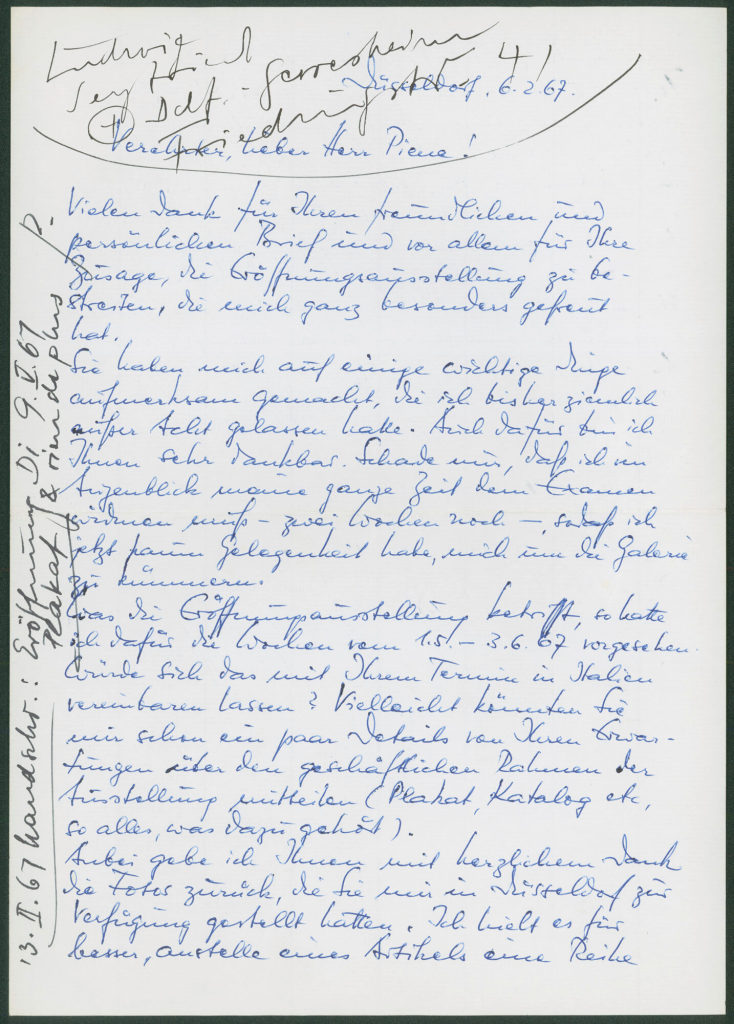 Ludwig
Ddf. - Gerresheim
4!
Düsseldorf, 6.2.67.
Verehrter, lieber Herr Piene!
Vielen Dank für Ihren freundlichen und
persönlichen Brief und vor allem für Ihre
Zusage, die Eröffnungsausstellung zu be-
streiten, die mich ganz besonders gefreut
hat.
Sie haben mich auf einige wichtige Dinge
aufmerksam gemacht, die ich bisher ziemlich
außer Acht gelassen hatte. Auch dafür bin ich
Ihnen sehr dankbar. Schade nur, daß ich im
Augenblick meine ganze Zeit dem Examen
widmen muß - zwei Wochen noch -, sodaß ich
jetzt kaum Gelegenheit habe, mich um die Galerie
zu kümmern.
Was die Eröffnungsausstellung betrifft, so hatte
ich dafür die Wochen vom 1.5. - 3.6.67 vorgesehen.
Würde sich das mit Ihrem Termin in Italien
vereinbaren lassen? Vielleicht könnten Sie
mir schon ein paar Details von Ihren Erwar-
tungen über den geschäftlichen Rahmen der
Ausstellung mitteilen (Plakat, Katalog etc,
so alles, was dazu gehört).
Anbei gebe ich Ihnen mit herzlichem Dank
die Fotos zurück, die Sie mir in Düsseldorf zur
Verfügung gestellt hatten. Ich hielt es für
besser, anstelle eines Artikels eine Reihe
13. II. 67 handschr.: Eröffnung Di 9. V. 67
Plakat &
P.